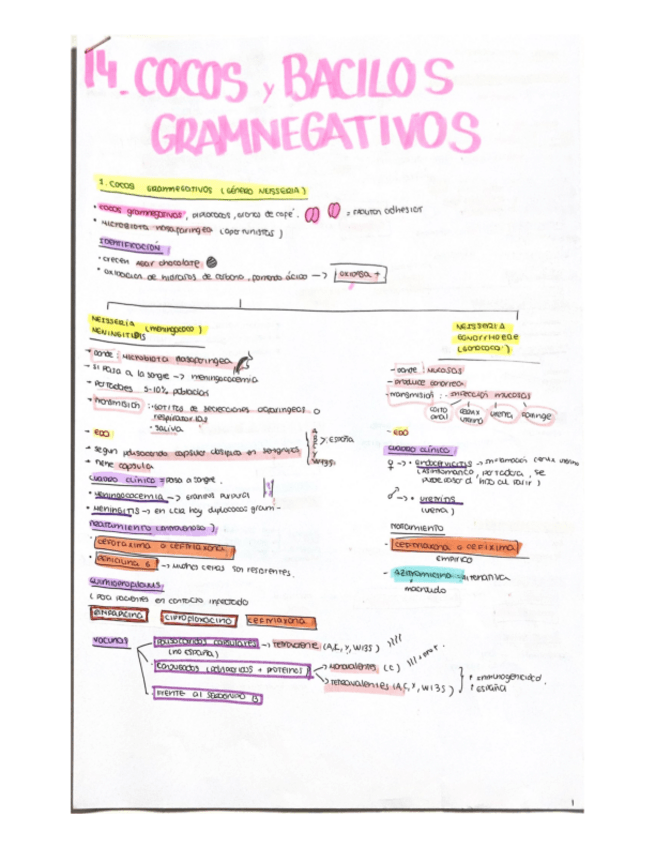 14. COCOS y BACILOS
GRAMNEGATIVOS
1. COCOS GRAMNEGATIVOS (GÉNERO NEISSERIA)
• COCOS gramnegativos, diplococos, granos de café.
• MICROBIOTA nasofaringea (oportunistas)
IDENTIFICACIÓN
• crecen agar chocolate
• oxidación de hidratos de carbono, formando ácido → oxidasa +
NEISSERIA (meningococo)
MENINGITIDIS
- donde: MICROBIOTA nasofaringea
- si pasa a la sangre → meningococemia
- Portadores 5-10% población
- transmisión: • gotitas de secreciones nasofaringeas o
respiratorias
• saliva
- EDO
- según polisacárido capsular clasifica en serogrupos
A B C Y W135
> España
- tiene capsula
cuadro clínico: pasa a sangre.
• Meningococemia →
• MENINGITIS → en LCR hay diplococos gram-
tratamiento (intravenoso)
• cefotaxima o ceftriaxona
• Penicilina G → muchas cepas son resistentes.
Quimioprofilaxis:
(para pacientes en contacto infectado
Rifampicina ciprofloxacino ceftriaxona
vacunas
polisacáridos capsulares → tetravalente (A,C,Y,W135)
(no españa)
Conjugadas (polisacáridos + proteínas) → Monovalentes (C)
→ tetravalentes (A,C,Y,W135)
↑ inmunogenicidad.
↑ España
FRENTE al SEROGRUPO B
NEISSERIA
GONORRHOEAE
(gonococo)
- donde: MUCOSAS
- produce gonorrea
- transmisión: - infección mucosas
cérvix
uterino
uretra
faringe
- EDO
cuadro clínico:
♀ → • endocervicitis → inflamación
(asintomático, portadora, se
puede pasar al hijo al parir)
♂ → • uretritis
(uretra)
tratamiento
- ceftriaxona o cefixima
empírico
- azitromicina: alternativa
macrólido
1